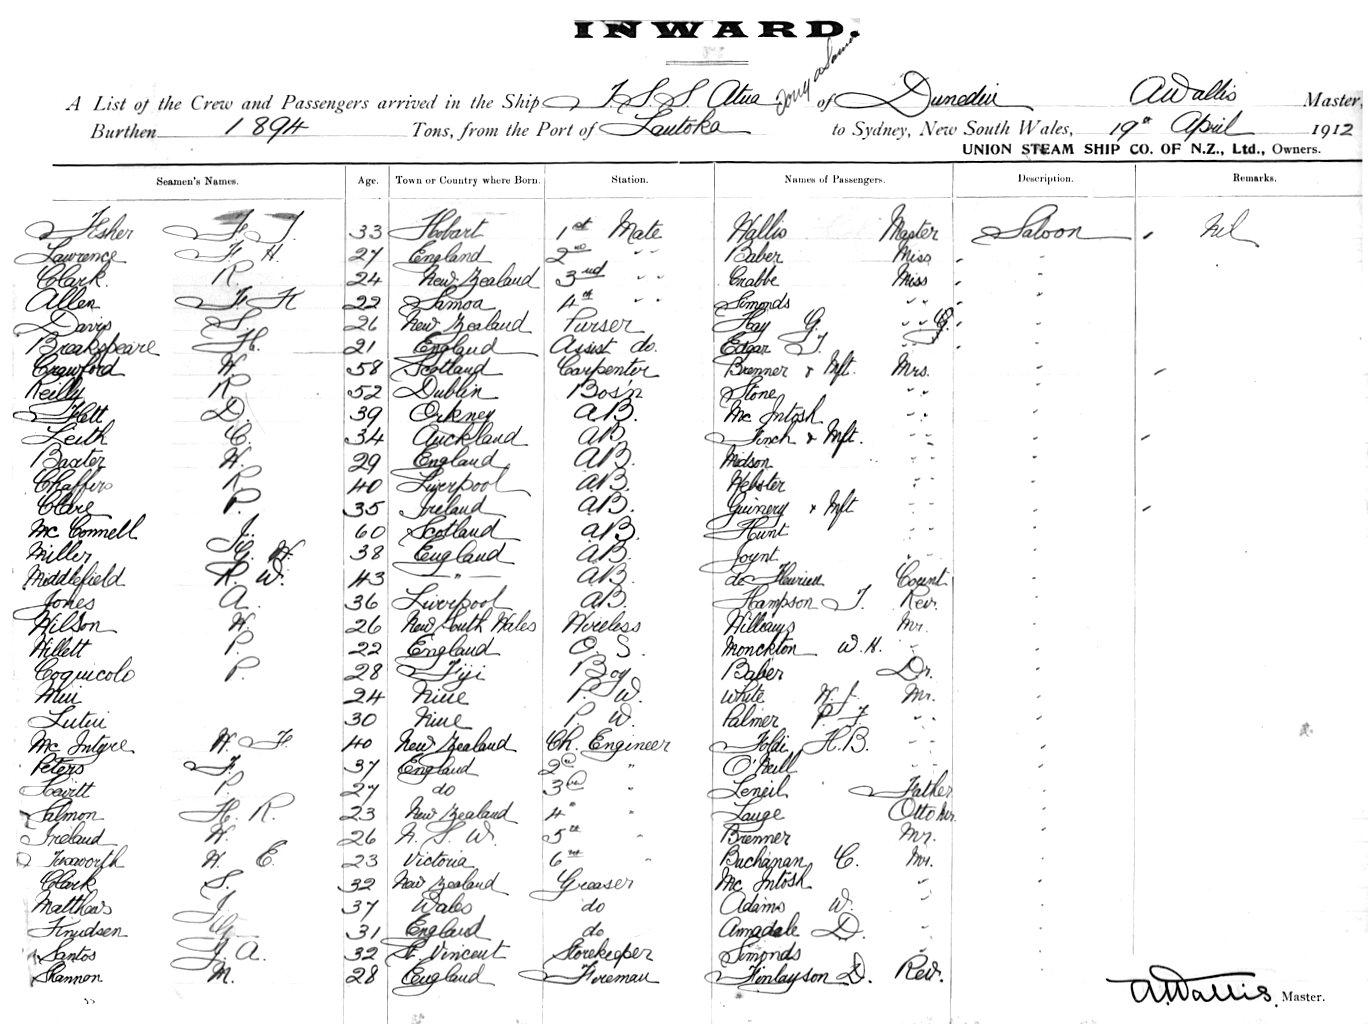 INWARD.
A List of the Crew and Passengers arrived in the Ship T.S.S. Atua Tonga Samoa of Dunedin A Wallis Master,
Burthen 1894 Tons, from the Port of Lautoka to Sydney, New South Wales, 19th April 1912
UNION STEAM SHIP CO. OF N.Z., Ltd., Owners.
Seamen's Names. Age. Town or Country where Born. Station. Names of Passengers. Description. Remarks.
Fisher F T 33 Hobart 1st Mate Wallis Master Saloon Nil
Lawrence F H 27 England 2nd " " Baber Miss
Clark R. 24 New Zealand 3rd " " Crabbe Miss
Allen F H 22 Samoa 4th " " Simonds " "
Davis S 26 New Zealand Purser Hay G. " " G.
Breakspeare H. 21 England Assist do. Edgar J. " "
Crawford W. 58 Scotland Carpenter Brenner & Mft. Mrs.
Reilly R 52 Dublin Bos'n Stone " "
Flett D. 39 Orkney A.B. Mc Intosh " "
Leith C. 34 Auckland A.B. Finch & Mft. " "
Baxter W. 29 England A.B. Midson " "
Chaffers R. 40 Liverpool A.B. Webster " "
Clare P. 35 Ireland A.B. Guinery & Mft " "
Mc Connell J. 60 Scotland A.B. Hunt " "
Miller G. W. 38 England A.B. Joynt " "
Middlefield R. W. 43 " A.B. de Fleurieu Count
Jones A. 36 Liverpool A.B. Hampson J. Rev.
Wilson W. 26 New South Wales Wireless Mr.
Willett P. 22 England O. S. Monckton W. H. "
Coquicolo P. 28 Fiji Boy Baber Dr.
Mui 24 Niue P. W. White W. J. Mr.
Lutui 30 Niue P. W. Palmer P. F " "
Mc Intyre W. F. 40 New Zealand Ch. Engineer Foldi H.B. " "
Peters F. 37 England 2nd " O'Neill " "
Levitt P. 27 do 3rd " Leneil Father
Salmon H. R. 23 New Zealand 4th " Lauge Otto Mr.
Ireland W. 26 N. S. W. 5th " Brenner Mr.
W. E. 23 Victoria 6th " Buchanan C. Mr.
Clark S. 32 New Zealand Greaser Mc Intosh "
Matthews J 37 Wales do Adams W. "
Knudsen 31 England do Annadale D. "
Santos J. A. 32 St. Vincent Storekeeper Simonds "
Shannon M. 28 England Fireman Finlayson D. Rev.
A. Wallis. Master.